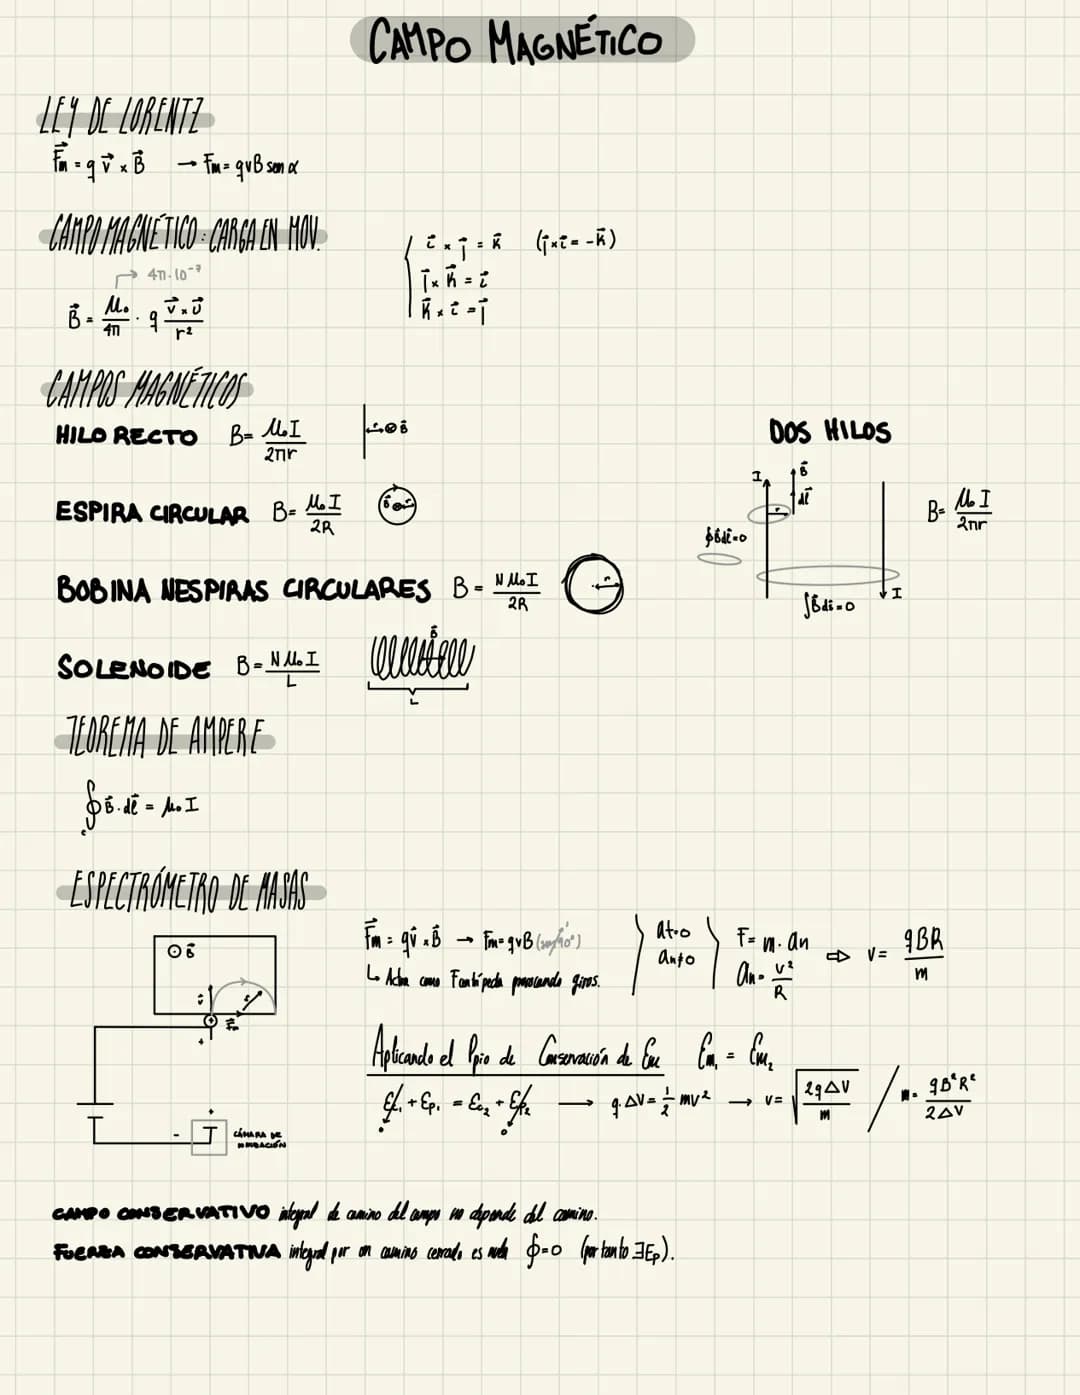 CAMPO MAGNÉTICO
LEY DE LORENTZ
F⃗m = q v⃗ × B⃗ → Fm = qvB sen α
CAMPO MAGNÉTICO: CARGA EN MOV.
→ 4π·10⁻⁷
B⃗ = μ₀/4π · q v⃗ × u⃗/r²
i⃗ × j⃗ = k⃗ (j⃗ × i⃗ = -k⃗)
j⃗ × k⃗ = i⃗
k⃗ × i⃗ = j⃗
CAMPOS MAGNÉTICOS
HILO RECTO B = μ₀I/2πr
r ⊗ B⃗
ESPIRA CIRCULAR B = μ₀I/2R
B⃗ r
BOBINA N ESPIRAS CIRCULARES B = Nμ₀I/2R
r
SOLENOIDE B = Nμ₀I/L
B⃗
L
DOS HILOS
I B⃗
dl⃗
r
∮B⃗dl⃗=0
B = μ₀I/2πr
I
∫B⃗dl⃗=0
TEOREMA DE AMPERE
∮c B⃗·dl⃗ = μ₀I
ESPECTRÓMETRO DE MASAS
⊙ B⃗
v⃗ r
+ F⃗m
+
+
-
CÁMARA DE
F⃗m = qv⃗ × B⃗ → Fm = qvB (sen 90°) 1
↳ Actúa como F centrípeta provocando giros.
at=0
an≠0
F = m·an
an = v²/R
⇨ v = qBR/m
Aplicando el Ppio de Conservación de Em Em₁ = Em₂
Ec₁ + Ep₁ = Ec₂ + Ep₂ → q·ΔV = 1/2 mv² → v = √(2qΔV/m) / m = qB²R²/2ΔV
0 0
CAMPO CONSERVATIVO integral de camino del campo no depende del camino.
FUERZA CONSERVATIVA integral por un camino cerrado es nula ∮=0 (por tanto ∃Ep).